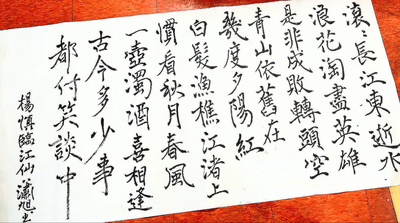 滾〻長江東逝水
浪花淘盡英雄
是非成敗轉頭空
青山依舊在
幾度夕陽紅
白髮漁樵江渚上
慣看秋月春風
一壺濁酒喜相逢
古今多少事
都付笑談中
楊慎臨江仙